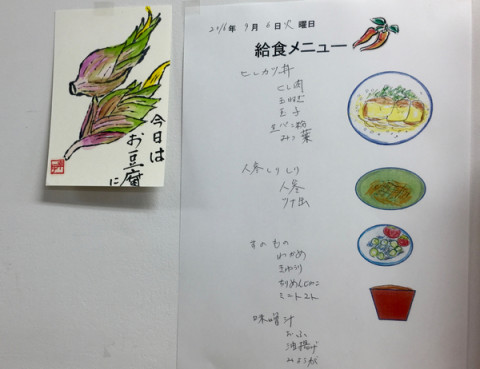 今日は
お豆腐に
2016年 9月 6日 火 曜日
給食メニュー
ヒレカツ丼
ヒレ肉
玉ねぎ
玉子
生パン粉
みつ葉
人参しりしり
人参
ツナ缶
すのもの
わかめ
きゅうり
ちりめんじゃこ
ミニトマト
味噌汁
おふ
油揚げ
みょうが